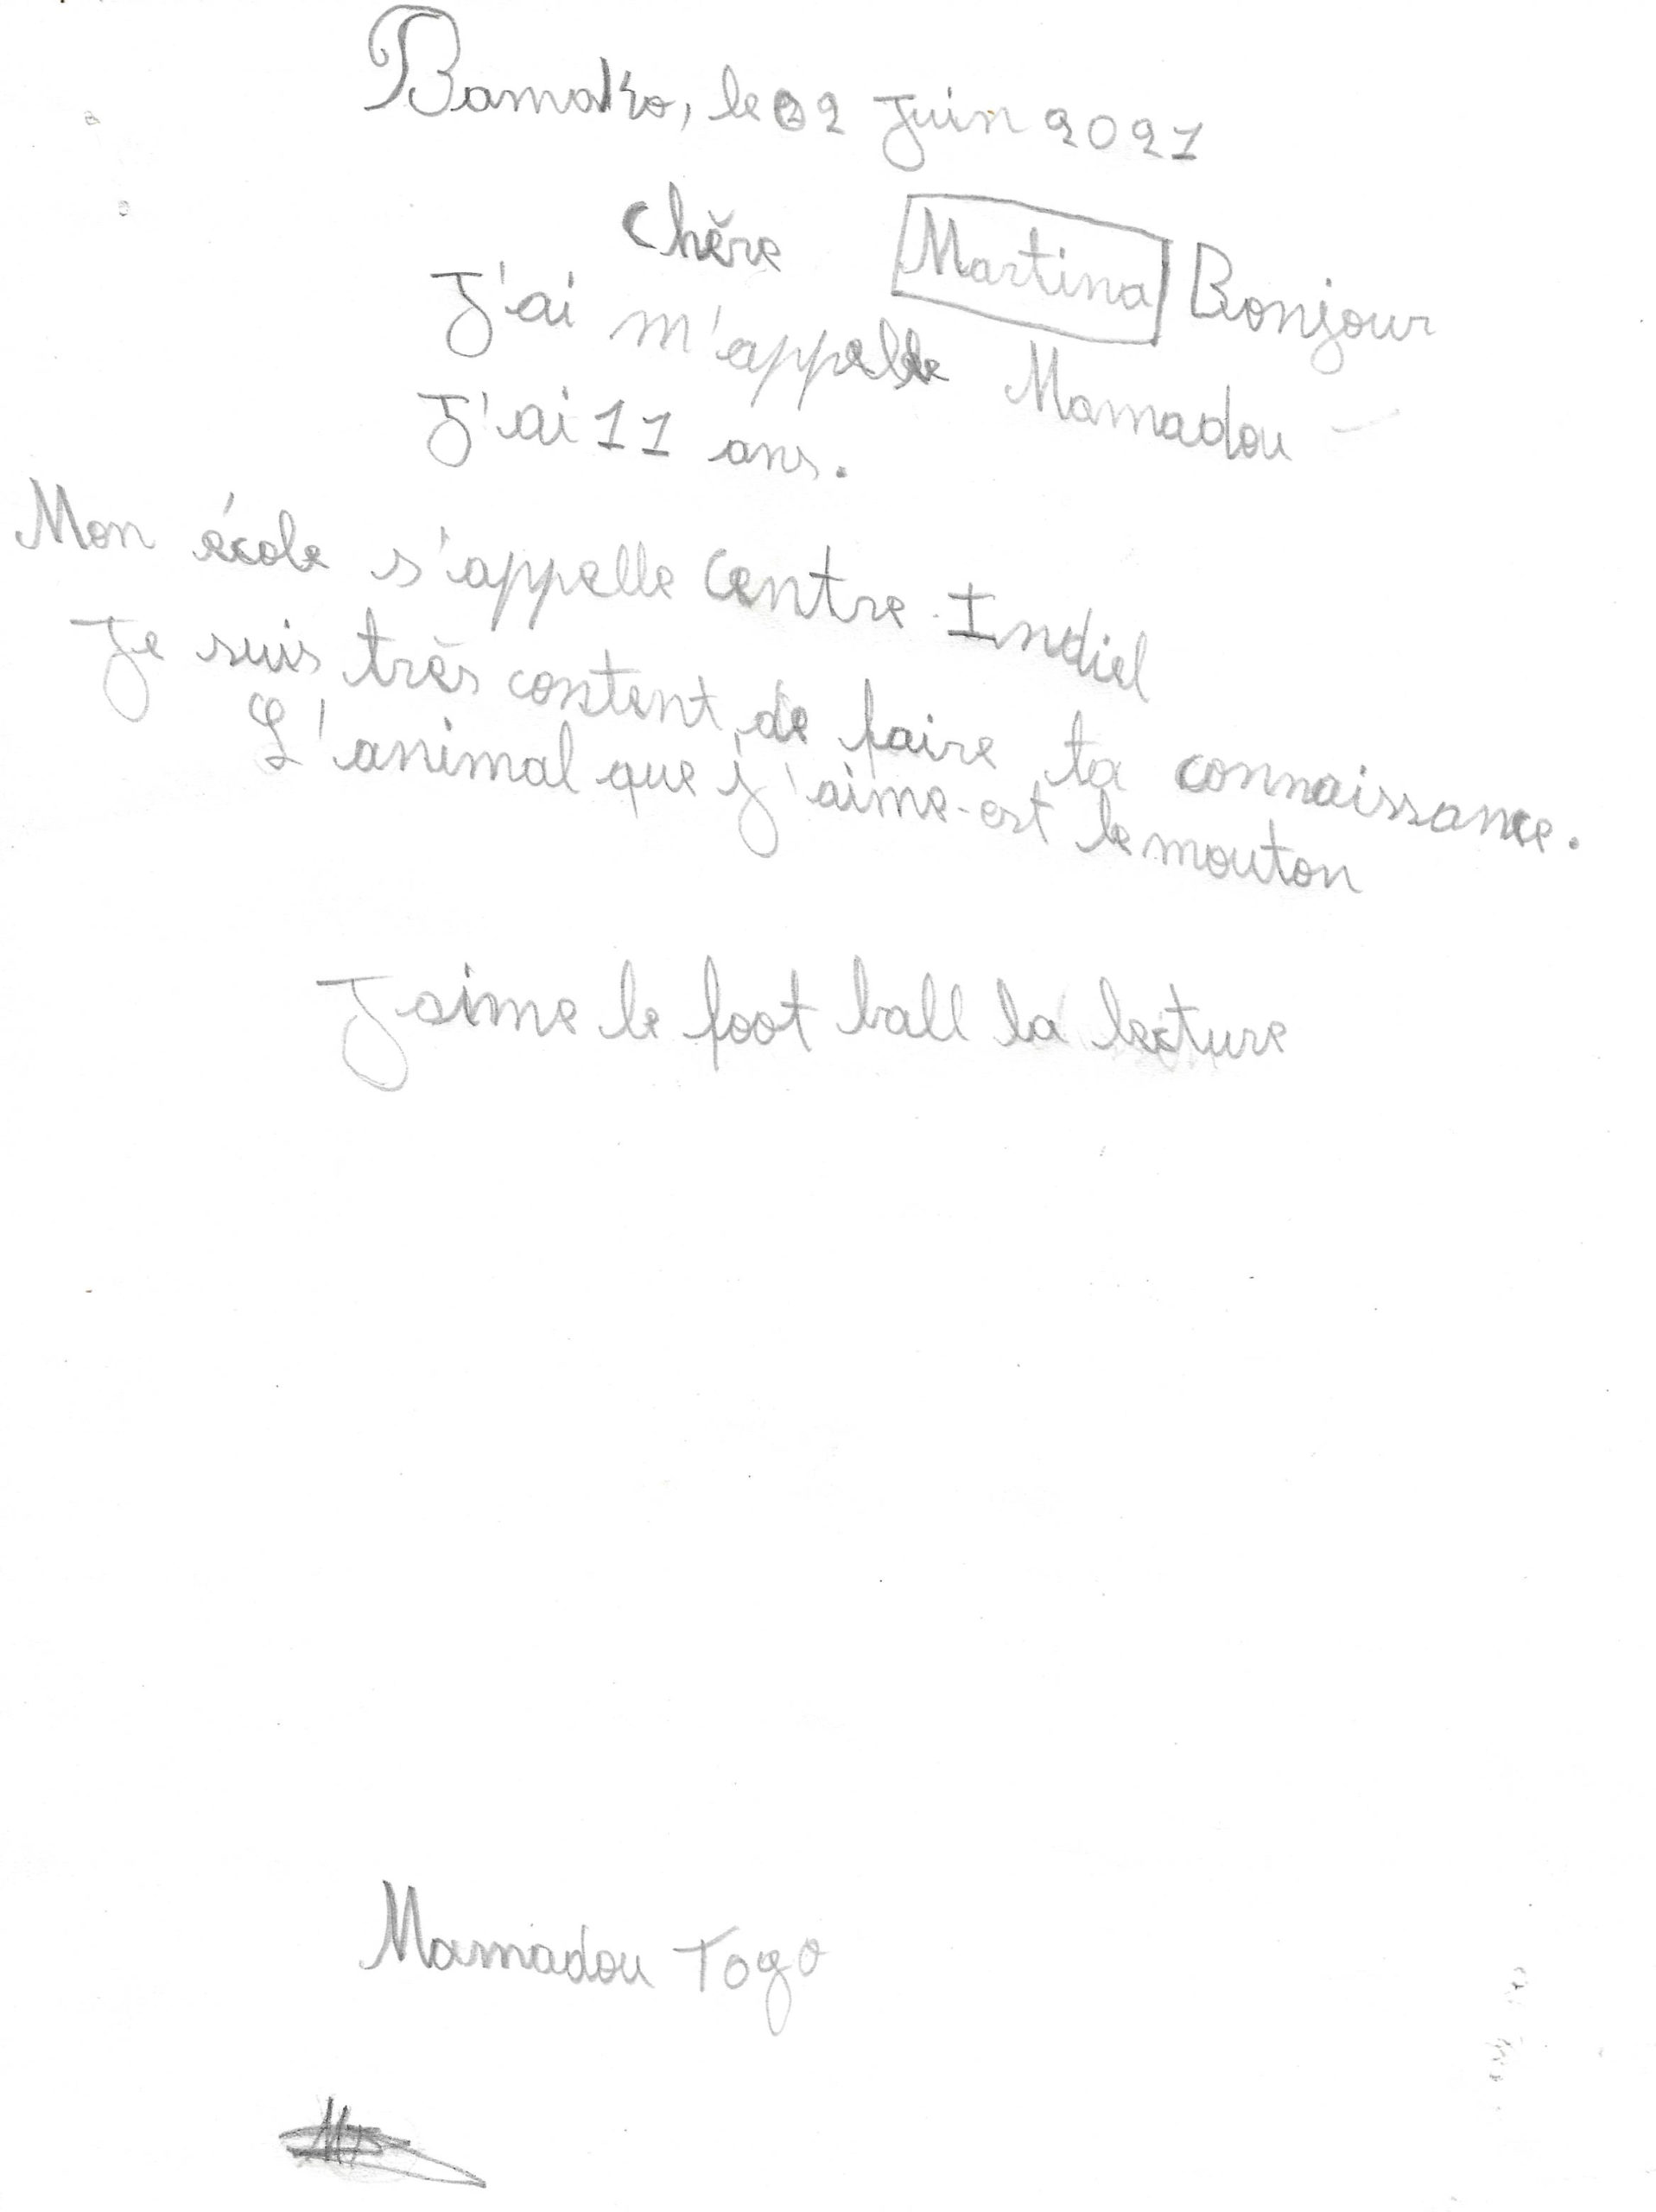 Bamako, le 02 Juin 2021
Chère Martina Bonjour
J'ai m'appelle Mamadou
J'ai 11 ans.
Mon école s'appelle Centre Indiel
Je suis très content de faire ta connaissance.
L'animal que j'aime est le mouton
J'aime le foot ball la lecture
Mamadou Togo